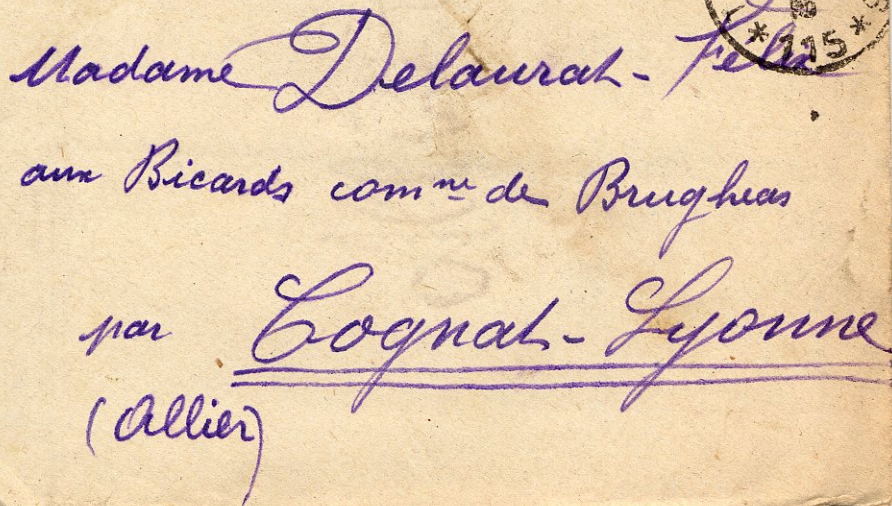 * 115 *
Madame Delaurat-Felix
aux Bicards comⁿᵉ de Brugheas
par Cognat-Lyonne
(Allier)